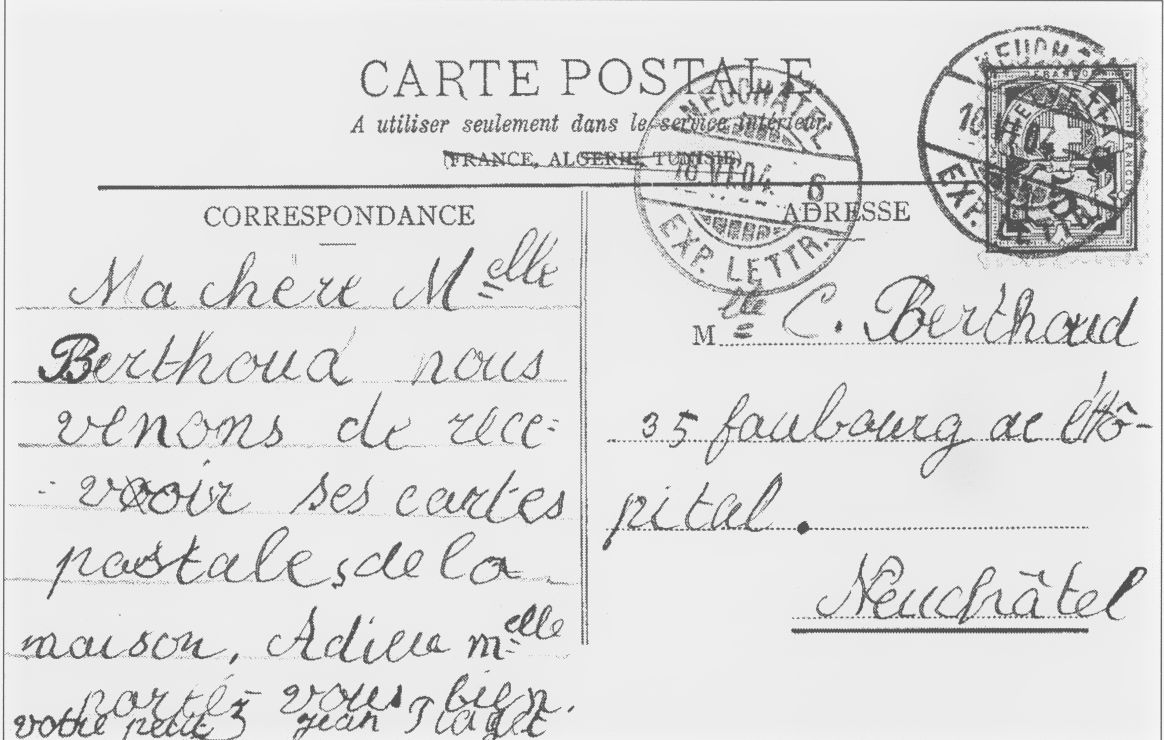 CARTE POSTALE
A utiliser seulement dans le service intérieur
(FRANCE, ALGERIE, TUNISIE)
NEUCHATEL
18 VI 04 - 6
EXP. LETTR.
NEUCHATEL
18 VI 04 - 6
EXP. LETTR.
FRANCO
CORRESPONDANCE
Ma chère Melle
Berthoud nous
venons de rece=
=voir ses cartes
postale, de la
maison, Adieu melle
portez-vous bien.
votre petit jean Piaget
ADRESSE
Mlle C. Berthoud
35 faubourg de l'Hô-
pital.
Neuchâtel